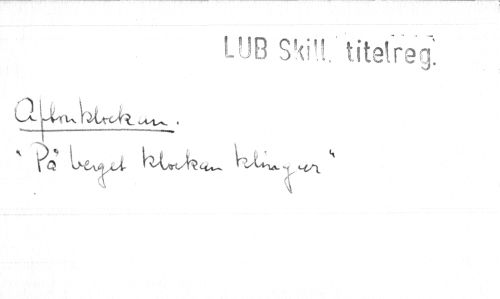 LUB Skill. titelreg.
Aftonklockan.
"På berget klockan klinger"